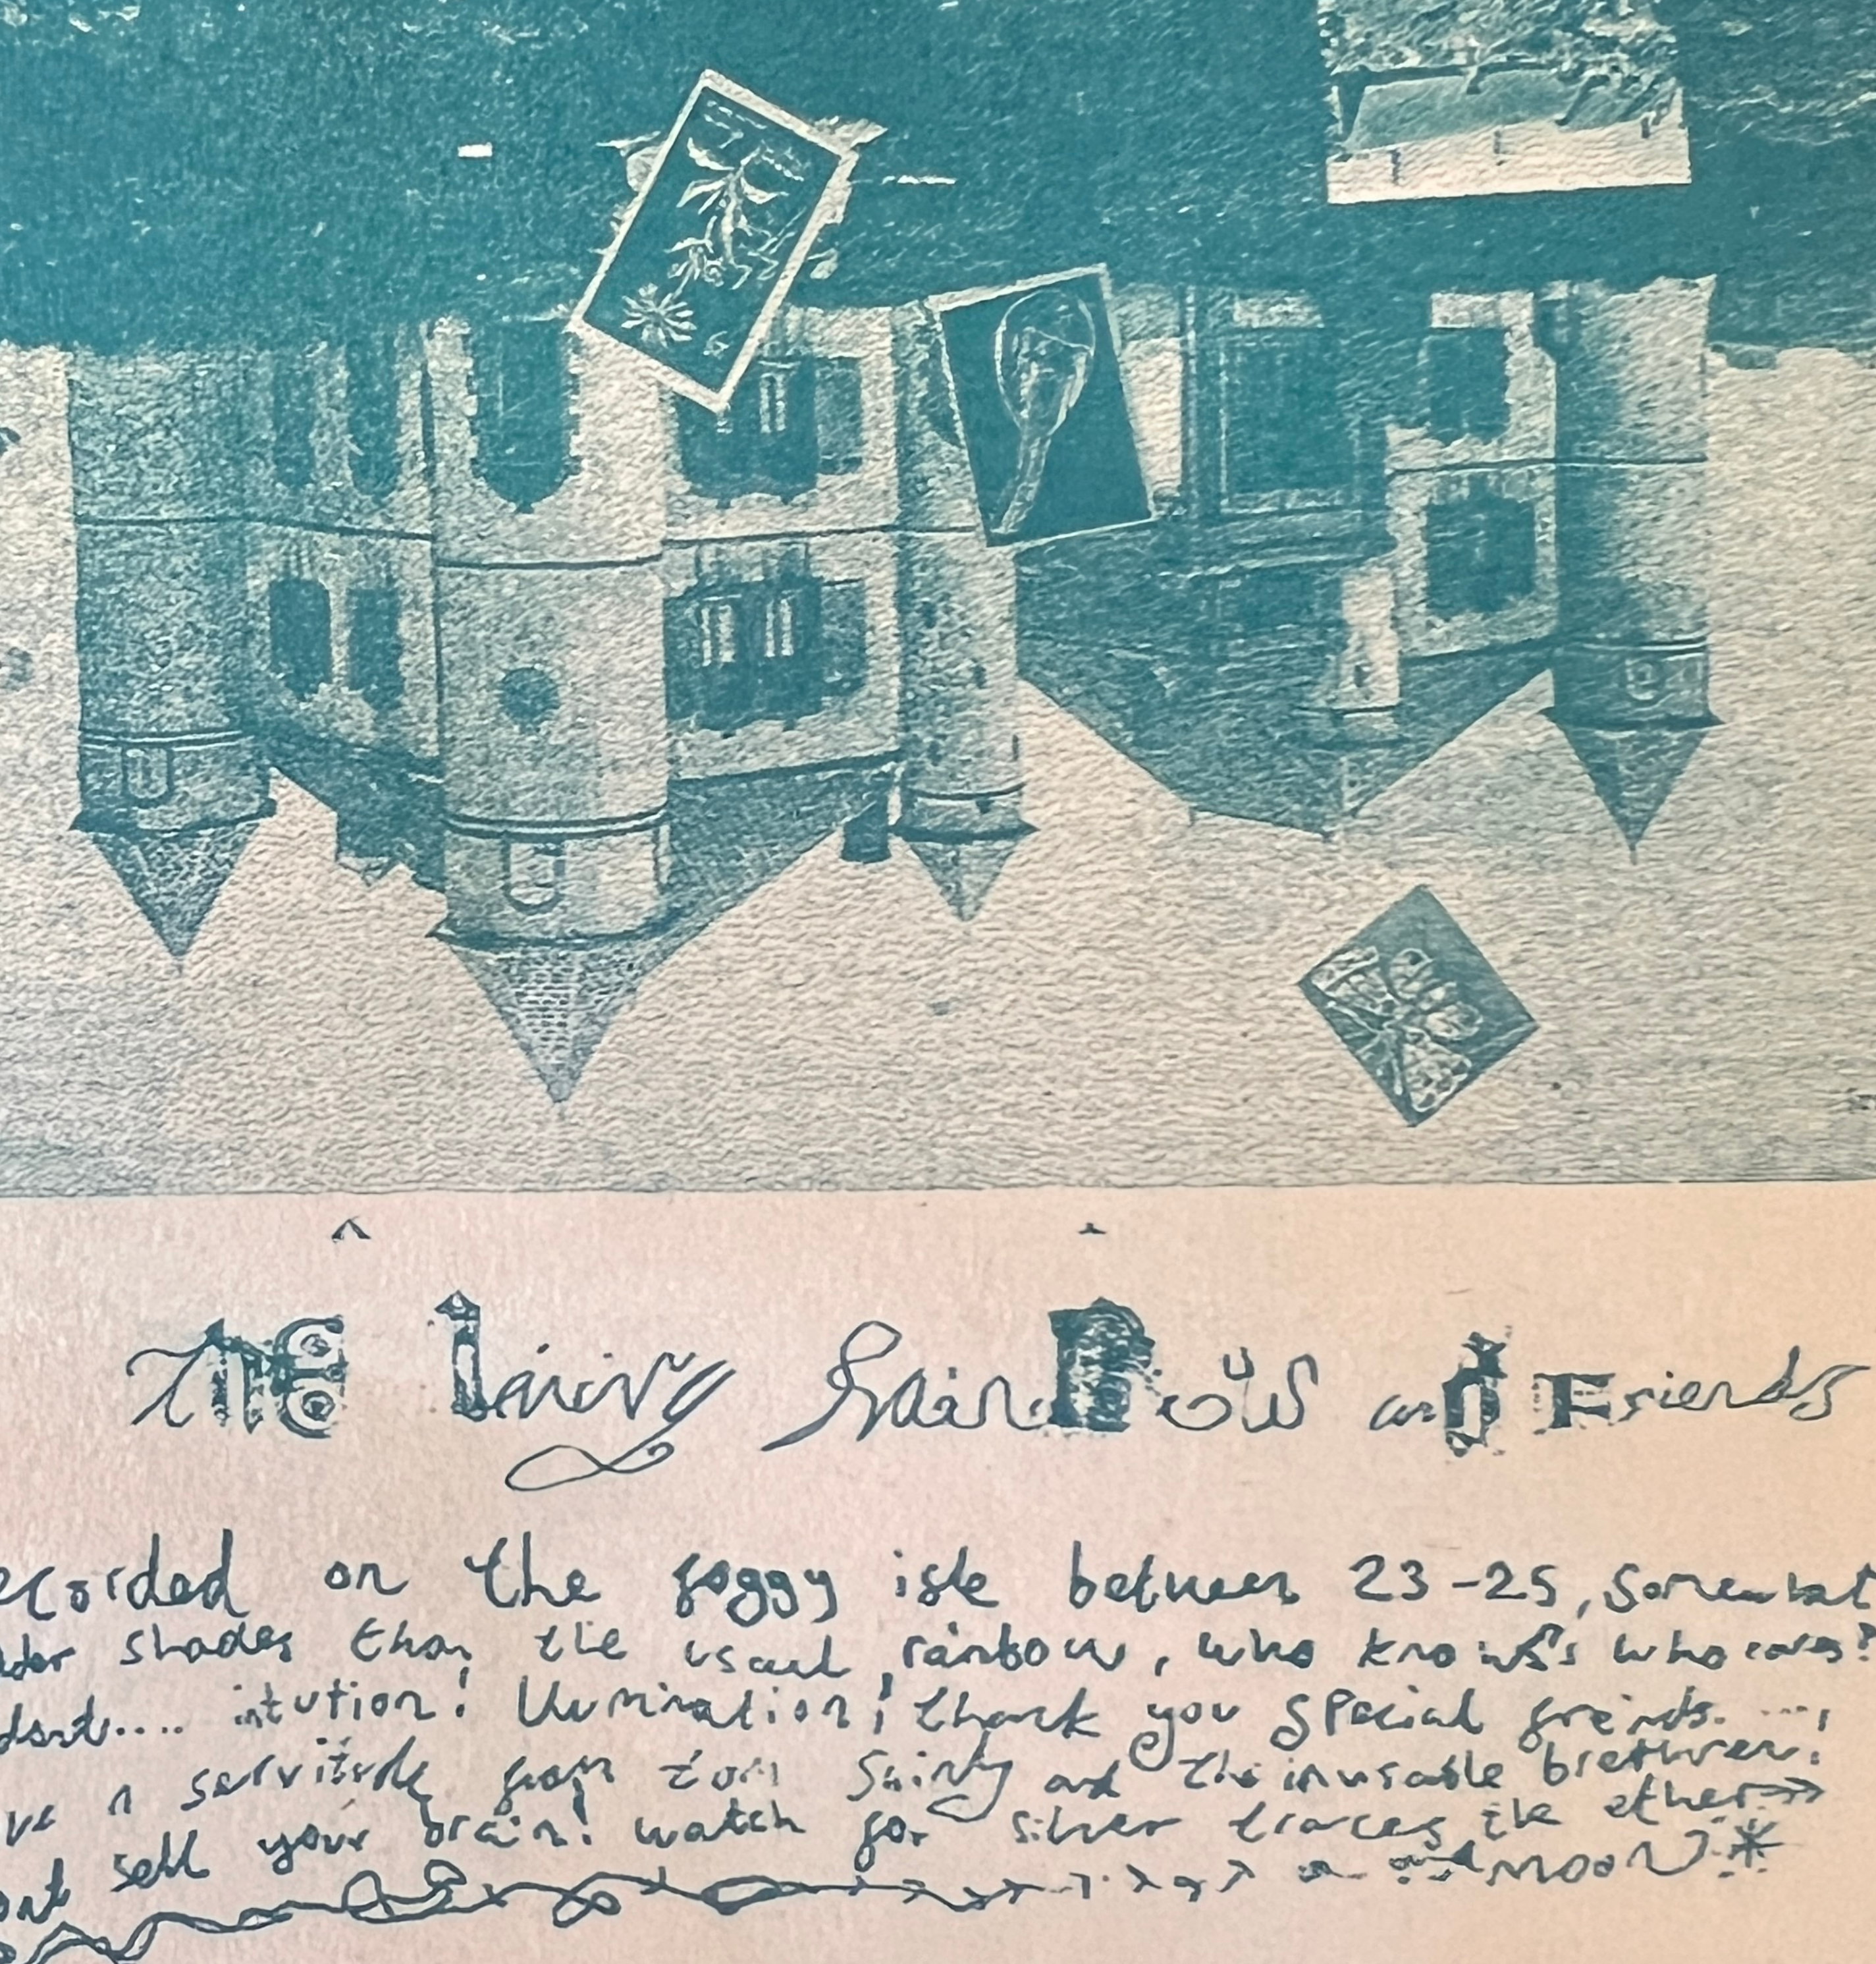 The Living Rainbow and Friends
ecorded on the foggy isle between 23-25, somewhat
shades than the usual rainbow, who knows who cares?
.... intution! Illumination! thank you special freinds. ....,
a servitude from tom Shinty and the invusable brethren!
ont sell your brain! watch for silver traces the ether
and moon